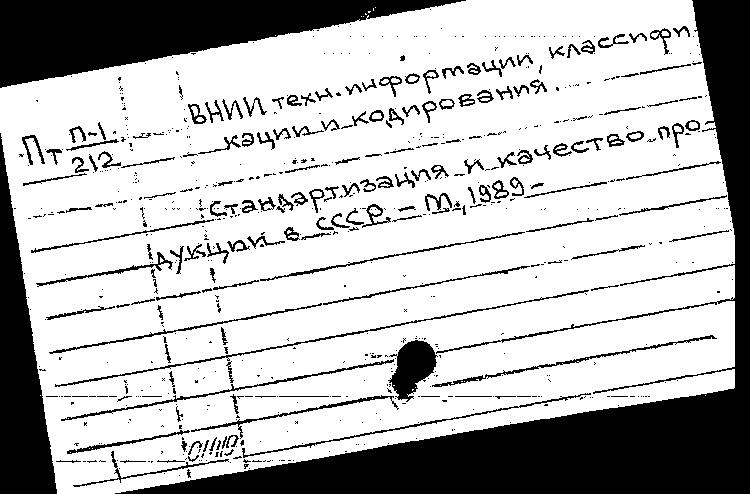 Пт П-1/212
ВНИИ техн. информации, классифи
кации и кодирования.
Стандартизация и качество про-
дукции в СССР. – М., 1989 –